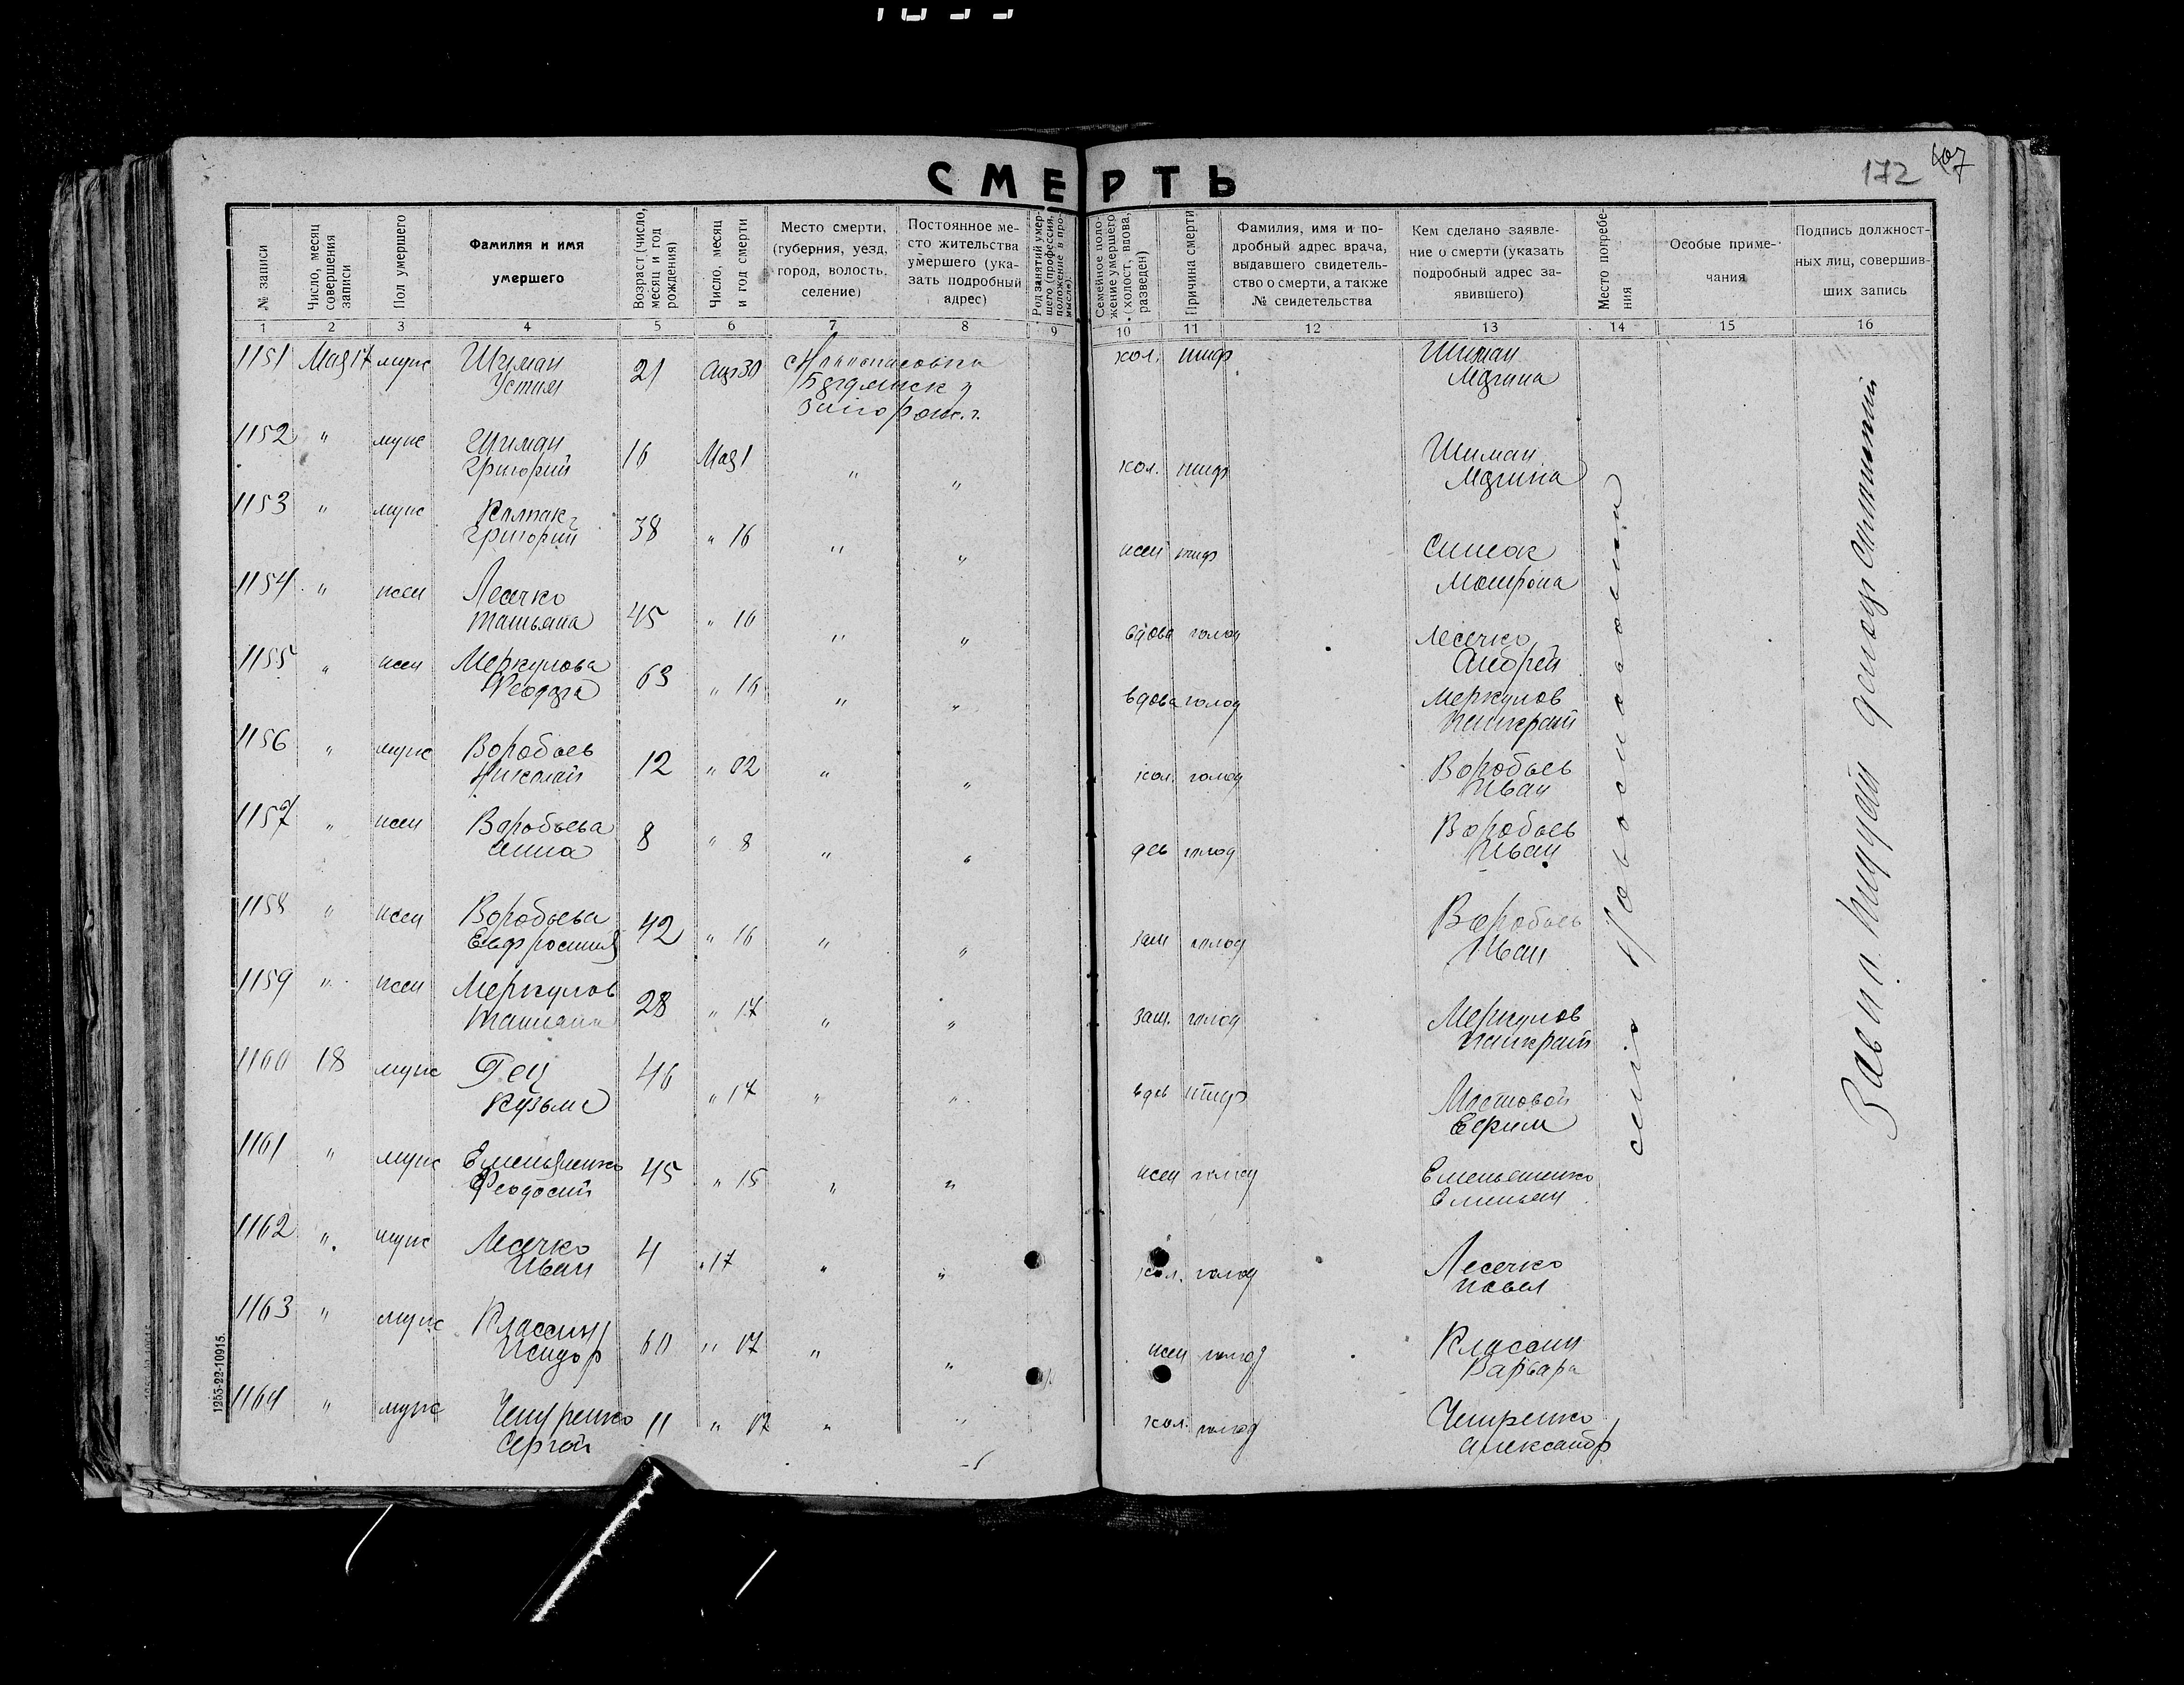 СМЕРТЬ
172 607
№ записи
Число, месяц совершения записи
Пол умершего
Фамилия и имя умершего
Возраст (число, месяц и год рождения)
Число, месяц и год смерти
Место смерти, (губерния, уезд, город, волость, селение)
Постоянное место жительства умершего (указать подробный адрес)
Род занятий умершего (профессия, положение в промысле).
Семейное положение умершего (холост, вдова, разведен)
Причина смерти
Фамилия, имя и подробный адрес врача, выдавшего свидетельство о смерти, а также № свидетельства
Кем сделано заявление о смерти (указать подробный адрес заявившего)
Место погребения
Особые примечания
Подпись должностных лиц, совершивших запись
1 2 3 4 5 6 7 8 9 10 11 12 13 14 15 16
1151 Мая 17 муж Шиман Устим 21 Апр 30 Запорож. г. хол. тиф Шиман
1152 " муж Шиман Григорий 16 Мая 1 " " хол. тиф Шиман
1153 " муж Колпак Григорий 38 " 16 " " жен тиф
1154 " жен Лесечко Татьяна 45 " 16 " " вдова голод Лесечко Андрей
1155 " жен Меркулова 63 " 16 " " вдова голод Меркулов Панкрат
1156 " муж Воробьев Николай 12 " 02 " " хол. голод Воробьев Иван
1157 " жен Воробьева Анна 8 " 8 " " дев голод Воробьев Иван
1158 " жен Воробьева Евфросиния 42 " 16 " " зам голод Воробьев Иван
1159 " жен Меркулов Татьяна 28 " 17 " " зам. голод Меркулов Панкрат
1160 18 муж Гец Кузьма 46 " 17 " " вдов тиф Мостовой Ефим
1161 " муж Емельяненко Феодосий 45 " 15 " " жен голод Емельяненко Емильян
1162 " муж Лесечко Иван 4 " 17 " " хол. голод Лесечко Павел
1163 " муж Классин Исидор 60 " 07 " " жен голод Классин Варвара
1164 " муж Чепуренко Сергей 11 " 07 " " хол. голод Чепуренко Александр
село
1255-22-10915.